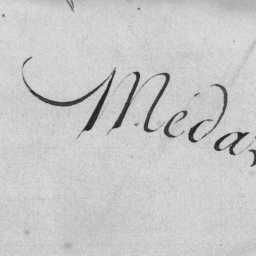 Méda